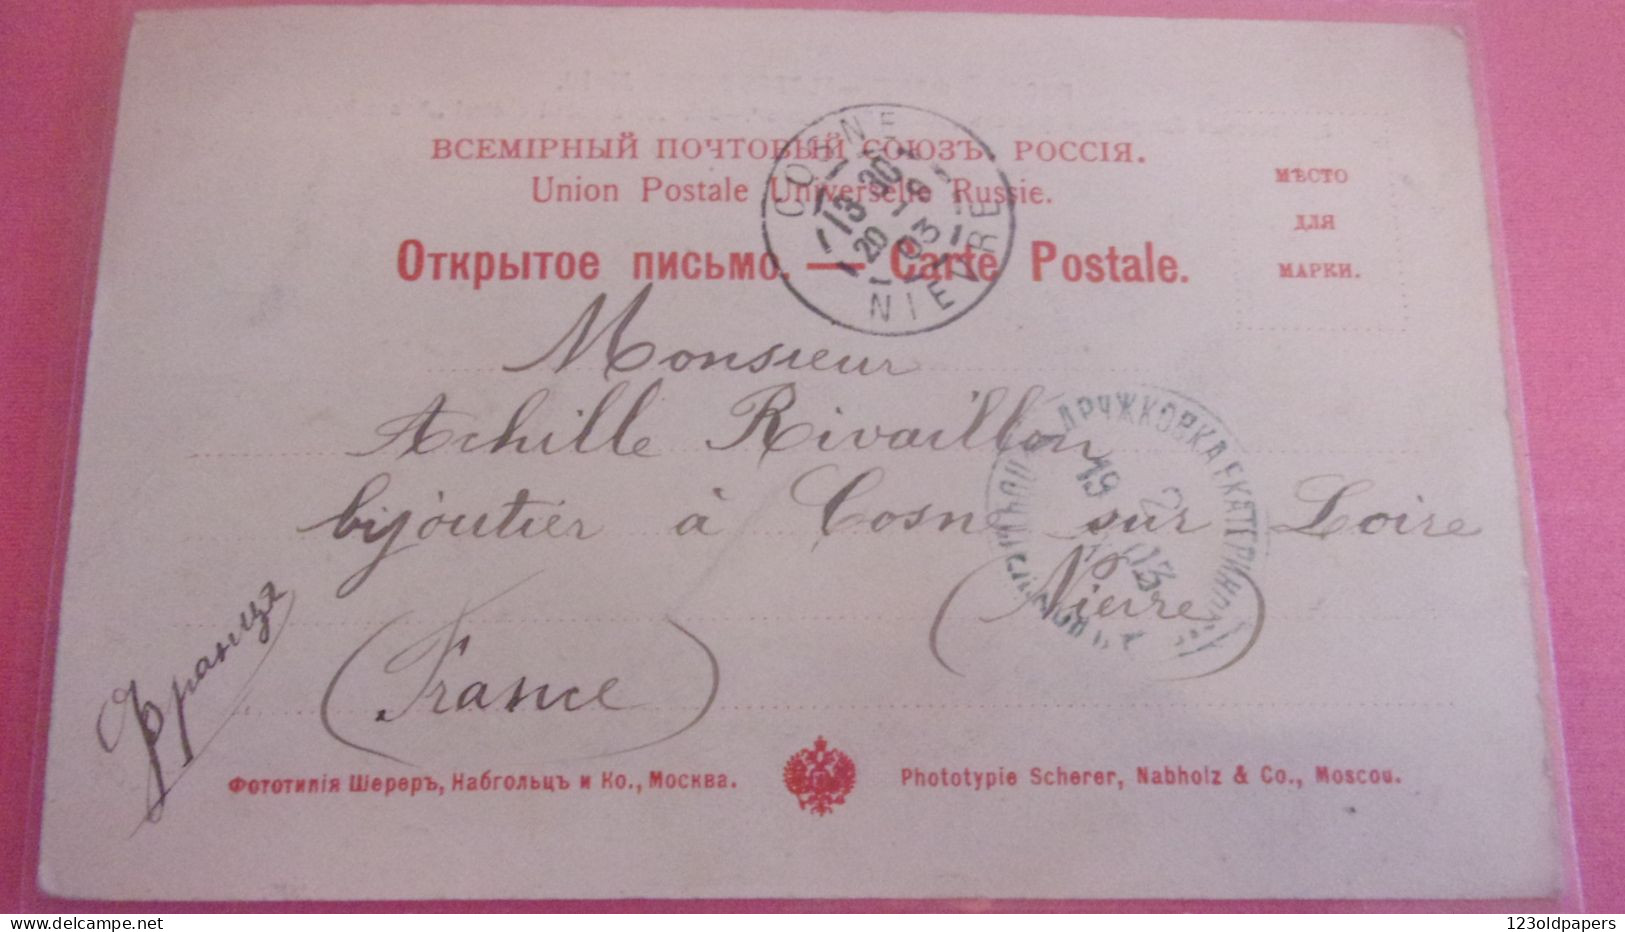 ВСЕМІРНЫЙ ПОЧТОВЫЙ СОЮЗЪ. РОССІЯ.
Union Postale Universelle Russie.
Открытое письмо. — Carte Postale.
МѢСТО
ДЛЯ
МАРКИ.
COSNE
13 30
20 -8
03
NIEVRE
Monsieur
Achille Rivaillon
bijoutier à Cosne sur Loire
(Nièvre)
(France)
Франція
ДРУЖКОВКА ЕКАТЕРИНОС
19 2
03
Фототипія Шереръ, Набгольцъ и Ко., Москва.
Phototypie Scherer, Nabholz & Co., Moscou.
123oldpapers